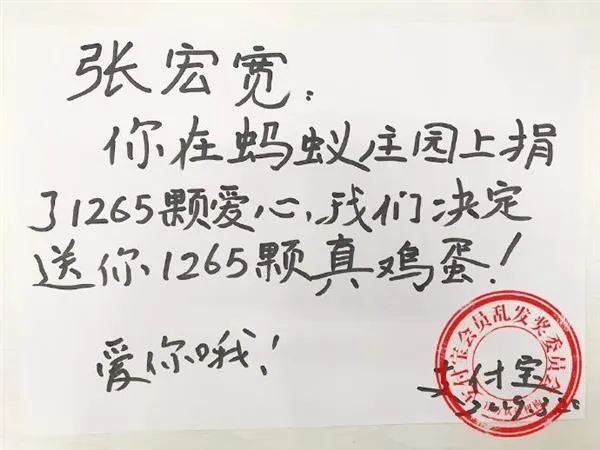 张宏宽：
你在蚂蚁庄园上捐
了1265颗爱心，我们决定
送你1265颗真鸡蛋！
爱你哦！
支付宝
支付宝会员乱发奖委员会